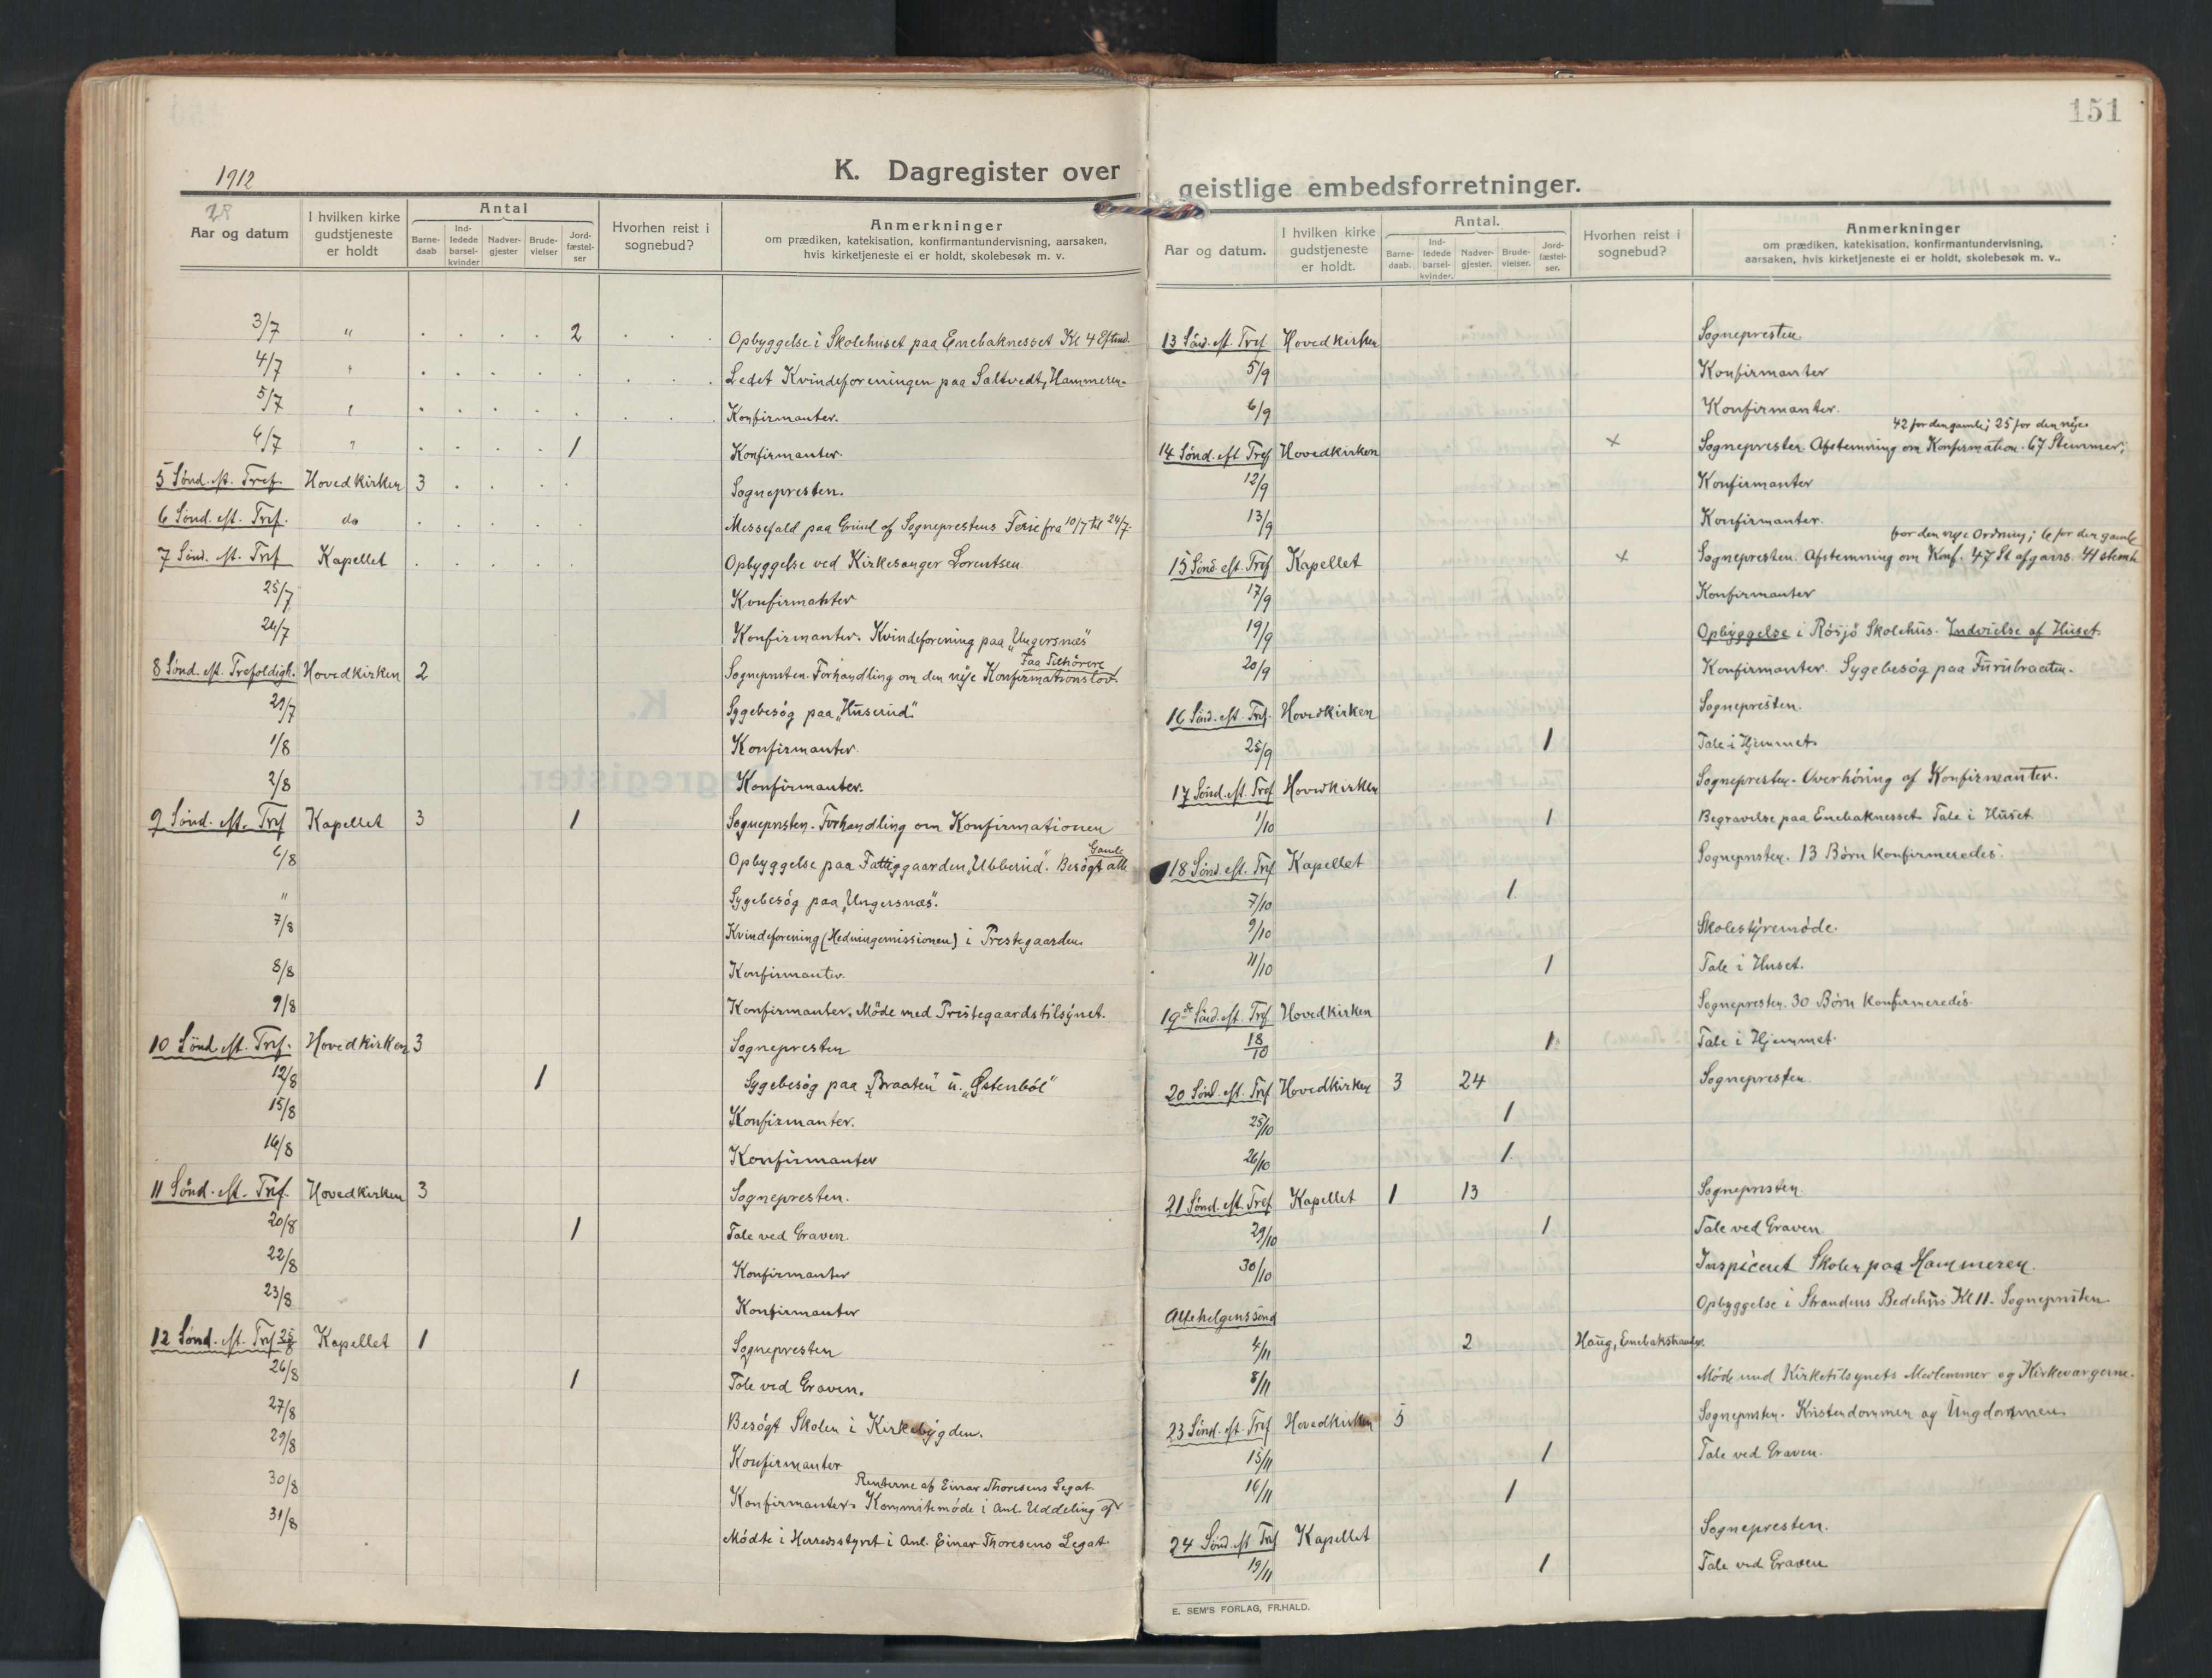 151
1912
K. Dagregister over
28
Aar og datum
I hvilken kirke gudstjeneste er holdt
Antal
Barne-daab
Ind-ledede barsel-kvinder
Nadver-gjester
Brude-vielser
Jord-fæstel-ser
Hvorhen reist i sognebud?
Anmerkninger
om prædiken, katekisation, konfirmantundervisning, aarsaken,
hvis kirketjeneste ei er holdt, skolebesøk m. v.
3/7 " . . . . 2 . . . Opbyggelse i Skolehuset paa Enebaknesset Kl 4 Eftmd.
4/7 " . . . . . . . . Ledet Kvindeforeningen paa Saltvedt, Hammeren.
5/7 " . . . . . . . . Konfirmanter.
6/7 " . . . . 1 Konfirmanter.
5 Sønd. eft. Tref. Hovedkirken 3 . . . . Sognepresten.
6 Sönd. eft. Tref. do . . . . . Messefald paa Grund af Sogneprestens Ferie fra 10/7 til 24/7.
7 Sönd. eft. Tref Kapellet . . . . . Opbyggelse ved Kirkesanger Lorentsen
25/7 Konfirmanter
26/7 Konfirmanter. Kvindeforening paa „Ungersnæs"
Faa Tilhörere
8 Sønd. eft. Trefoldigh. Hovedkirken 2 Sognepresten. Forhandling om den nye Konfirmationslov.
29/7 Sygebesög paa „Huserud"
1/8 Konfirmanter
2/8 Konfirmanter.
9 Sönd. eft. Tref Kapellet 3 1 Sognepresten. Forhandling om Konfirmationen
Gamle
6/8 Opbyggelse paa Fattiggaarden „Ubberud". Besögt alle
" Sygebesög paa „Ungersnæs".
7/8 Kvindeforening (Hedningemissionen) i Prestegaarden.
8/8 Konfirmanter.
9/8 Konfirmanter. Möde med Prestegaardstilsynet.
10 Sönd. eft. Tref. Hovedkirken 3 Sognepresten
12/8 1 Sygebesög paa „Braaten" u. „Østenböl"
15/8 Konfirmanter.
16/8 Konfirmanter
11 Sönd. eft. Tref. Hovedkirken 3 Sognepresten.
20/8 1 Tale ved Graven.
22/8 Konfirmanter
23/8 Konfirmanter
12 Sönd. eft. Tref 25/8 Kapellet 1 Sognepresten
26/8 1 Tale ved Graven.
27/8 Besögt Skolen i Kirkebygden.
29/8 Konfirmanter
Renterne af Einar Thoresens Legat
30/8 Konfirmanter. Kommitemöde i Anl. Uddeling af
31/8 Mödte i Herredsstyret i Anl. Einar Thoresens Legat.
geistlige embedsforretninger.
Aar og datum.
I hvilken kirke gudstjeneste er holdt.
Antal.
Barne-daab.
Ind-ledede barsel-kvinder.
Nadver-gjester.
Brude-vielser.
Jord-fæstel-ser.
Hvorhen reist i sognebud?
Anmerkninger
om prædiken, katekisation, konfirmantundervisning,
aarsaken, hvis kirketjeneste ei er holdt, skolebesøk m. v..
13 Sönd. eft. Tref Hovedkirken Sognepresten
5/9 Konfirmanter
6/9 Konfirmanter.
42 for den gamle; 25 for den nye
14 Sönd. eft Tref Hovedkirken x Sognepresten. Afstemning om Konfirmation. 67 Stemmer;
12/9 Konfirmanter
13/9 Konfirmanter.
for den nye Ordning; 6 for den gamle
15 Sönd. eft. Tref Kapellet x Sognepresten. Afstemning om Konf. 47 St afgaves. 41 stemte
17/9 Konfirmanter
19/9 Opbyggelse i Rösjö Skolehus. Indvielse af Huset.
20/9 Konfirmanter. Sygebesög paa Furubraaten.
16 Sönd. eft. Tref. Hovedkirken Sognepresten.
25/9 1 Tale i Hjemmet.
17 Sönd. eft. Tref Hovedkirken Sognepresten. Overhöring af Konfirmanter.
1/10 1 Begravelse paa Enebaknesset Tale i Huset
18 Sönd. eft. Tref Kapellet Sognepresten. 13 Börn konfirmeredes.
7/10 1.
9/10 Skolestyremöde.
11/10 1 Tale i Huset.
19de Sönd. eft. Tref Hovedkirken Sognepresten. 30 Börn konfirmeredes.
18/10 1. Tale i Hjemmet.
20 Sönd. eft. Tref Hovedkirken 3 24 Sognepresten.
25/10 1
26/10 1.
21 Sönd. eft. Tref Kapellet 1 13 Sognepresten
29/10 1 Tale ved Graven.
30/10 Inspiceret Skolen paa Hammeren.
Allehelgenssönd Opbyggelse i Strandens Bedehus Kl 11. Sognepresten.
4/11 2 Haug, Enebakstranden.
8/11 Möde med Kirketilsynets Medlemmer og Kirkevargerne.
23 Sönd. eft. Tref Hovedkirken 5 Sognepresten. Kristendommen og Ungdommen
15/11 1 Tale ved Graven.
16/11 1
24 Sönd. eft Tref Kapellet Sognepresten.
19/11 1 Tale ved Graven
E. SEM'S FORLAG, FR.HALD.